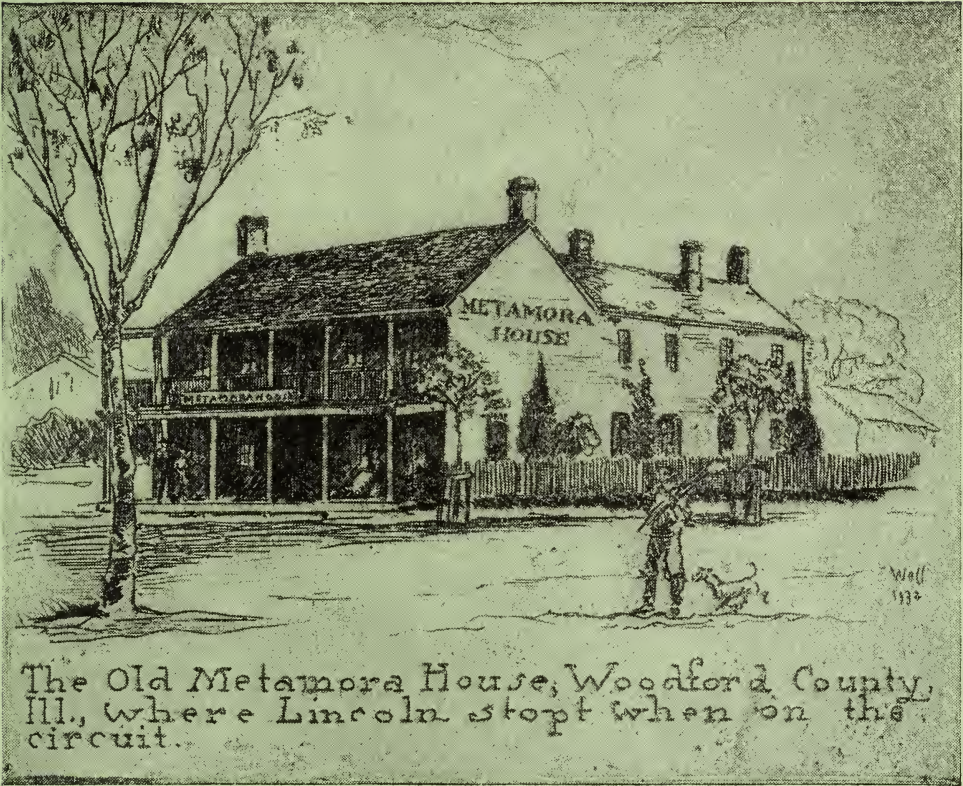 METAMORA
HOUSE
METAMORA HOUSE
Wall
1932
The Old Metamora House, Woodford County,
Ill., where Lincoln stopt when on the
circuit.